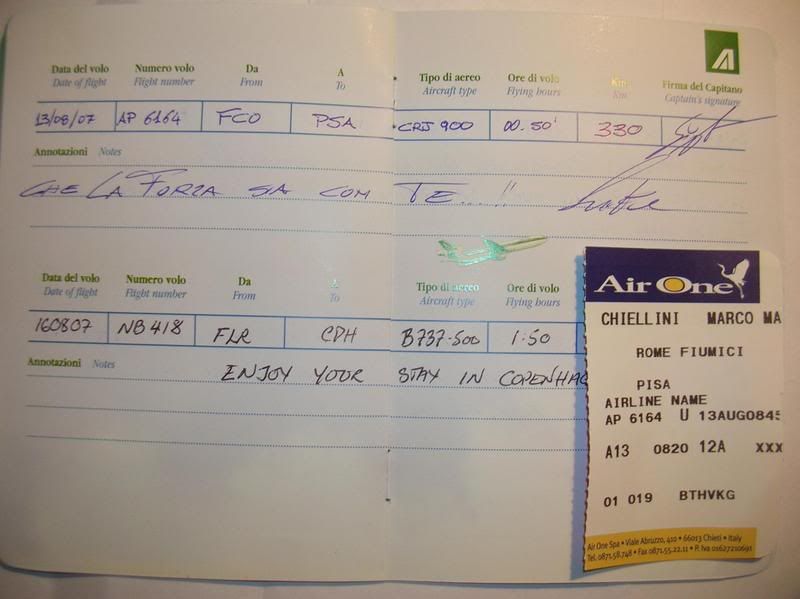 Data del volo Numero volo Da A Tipo di aereo Ore di volo Km Firma del Capitano
Date of flight Flight number From To Aircraft type Flying hours Km Captain's signature
13/08/07 AP 6164 FCO PSA CRJ 900 00.50' 330
Annotazioni Notes
CHE LA FORZA SIA COM TE...!!
Data del volo Numero volo Da A Tipo di aereo Ore di volo
Date of flight Flight number From To Aircraft type Flying hours
160807 NB418 FLR CPH B737-500 1:50
Annotazioni Notes
ENJOY YOUR STAY IN COPENHAG
Air One
CHIELLINI MARCO MA
ROME FIUMICI
PISA
AIRLINE NAME
AP 6164 U 13AUG0845
A13 0820 12A XXX
01 019 BTHVKG
Air One Spa • Viale Abruzzo, 410 • 66013 Chieti • Italy
Tel. 0871.58.748 • Fax 0871.55.22.11 • P. Iva 01627210691